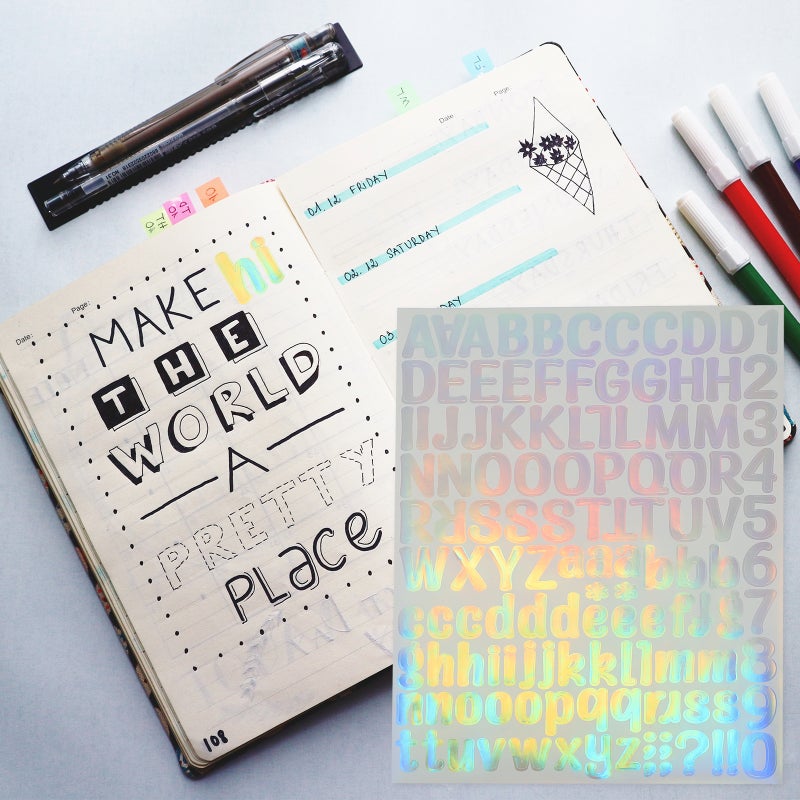 Date:
Page:
MAKE hi
THE
WORLD
A
PRETTY
PLace
108
Date
Page
01.12 FRIDAY
02.12 SATURDAY
03
DAY
AAABBCCCDD1
DEEEFFGGHH2
IIJJKKLLMM3
NNOOOPQQR4
RRSSSSTTTUV5
WXYZaaabbb6
cccdddeeefff7
ghhiijjkkllmm8
nnooopqqrrss9
ttuvwxyz;;?!!0